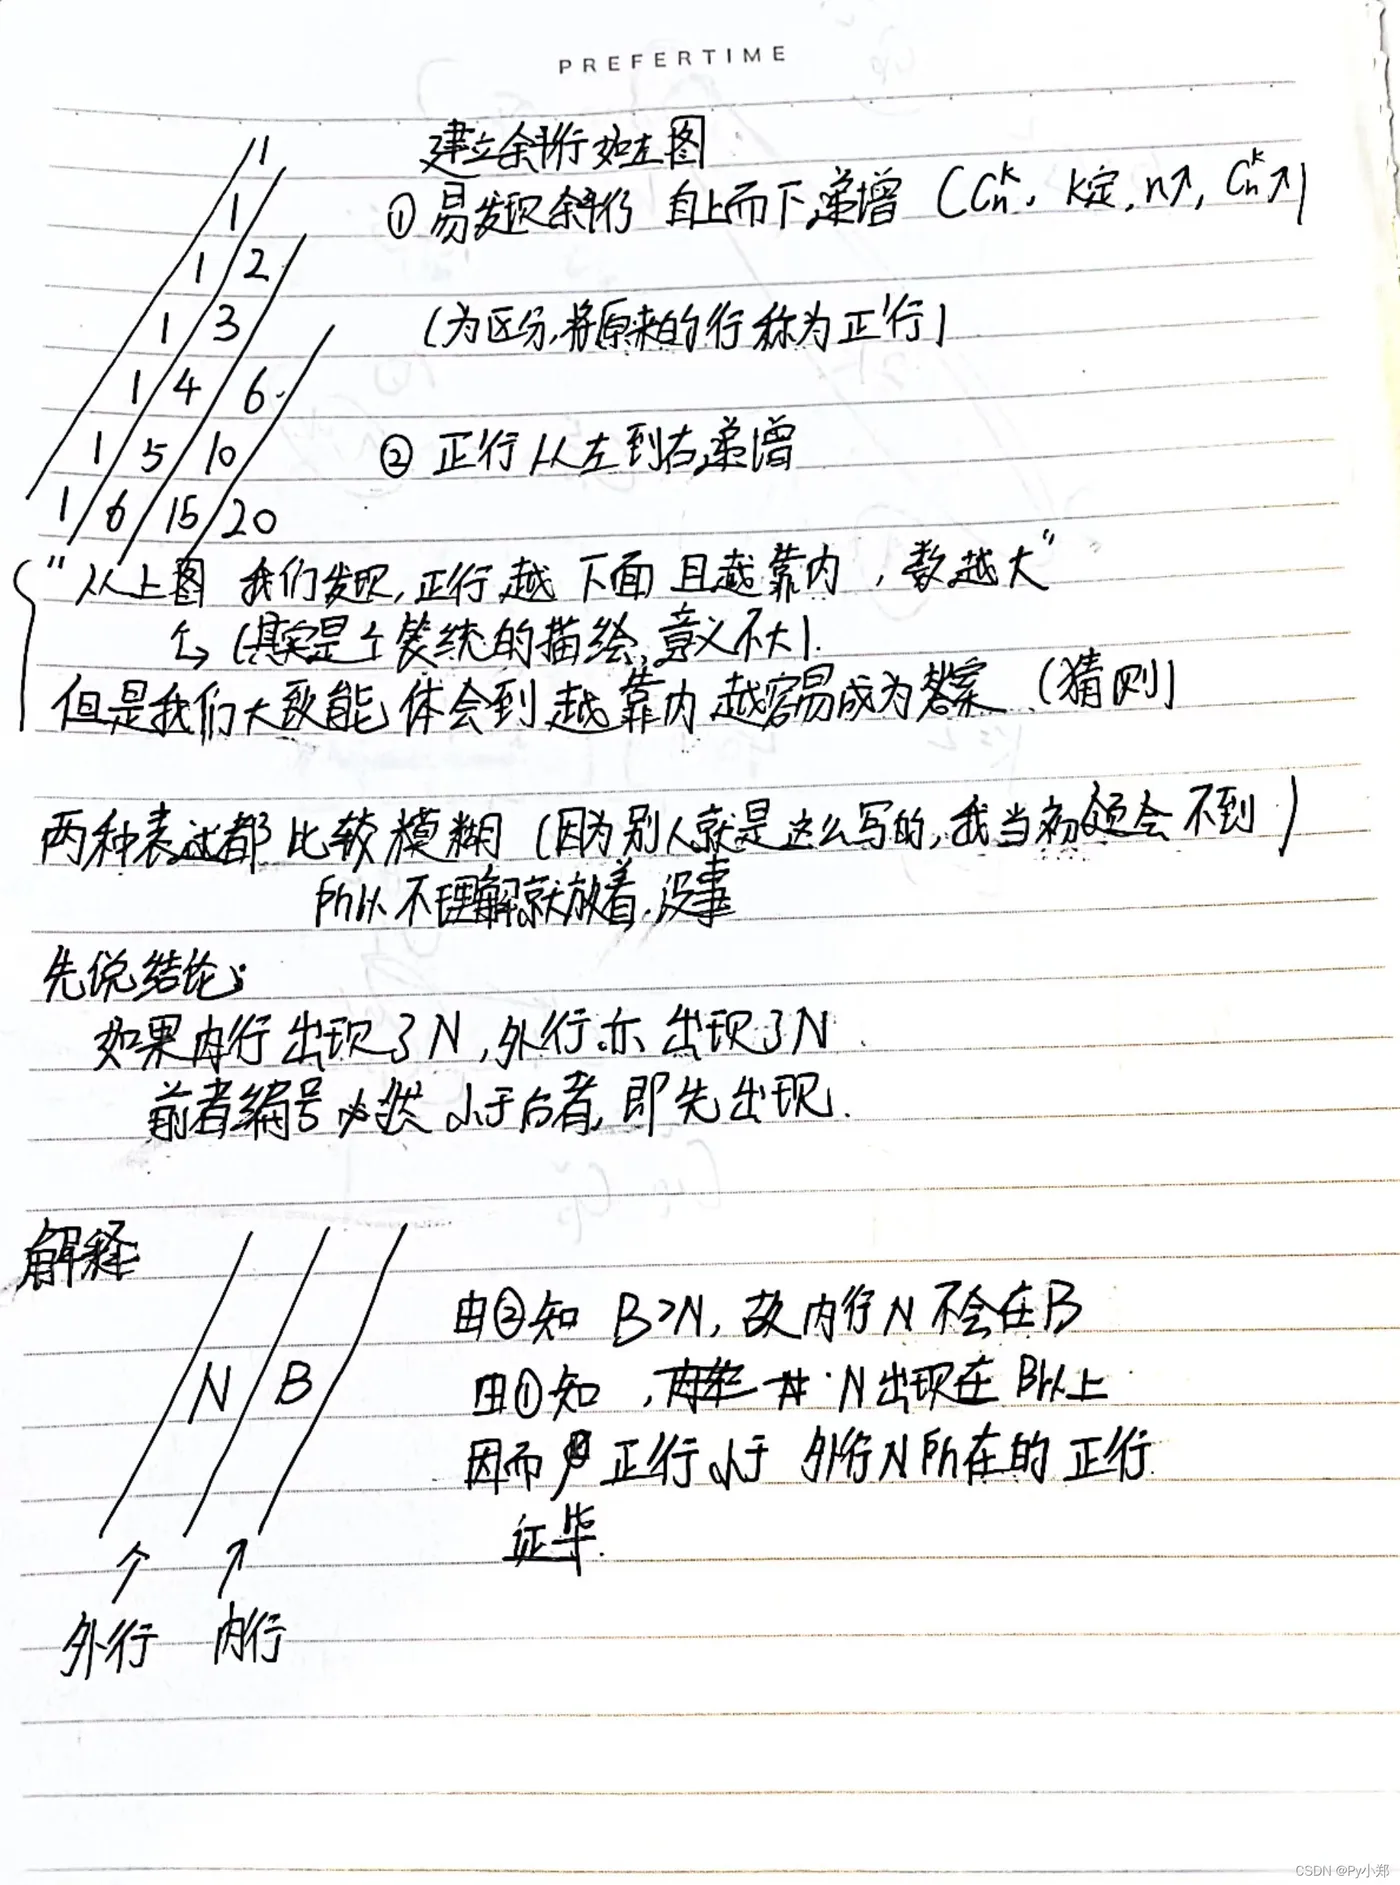 PREFERTIME
建立斜行如左图
① 易发现斜行 自上而下递增 (C_n^k, k定, n↑, C_n^k↑)
1
1
1 2
1 3
(为区分,将原来的行称为正行)
1 4 6
② 正行从左到右递增
1 5 10
1 6 15 20
"从上图 我们发现,正行越下面且越靠内,数越大"
↳ (其实是个笼统的描绘,意义不大).
但是我们大致能体会到越靠内越容易成为答案 (猜测)
两种表述都比较模糊 (因为别人就是这么写的,我当初领会不到)
所以不理解就放着,没事
先说结论:
如果内行出现了N,外行亦出现了N.
前者编号必然小于后者,即先出现.
解释
由②知 B>N, 故内行N不会在B
N B
由①知, N出现在B以上
因而 正行小于 外行N所在的正行.
证毕.
外行 内行
CSDN @Py小郑